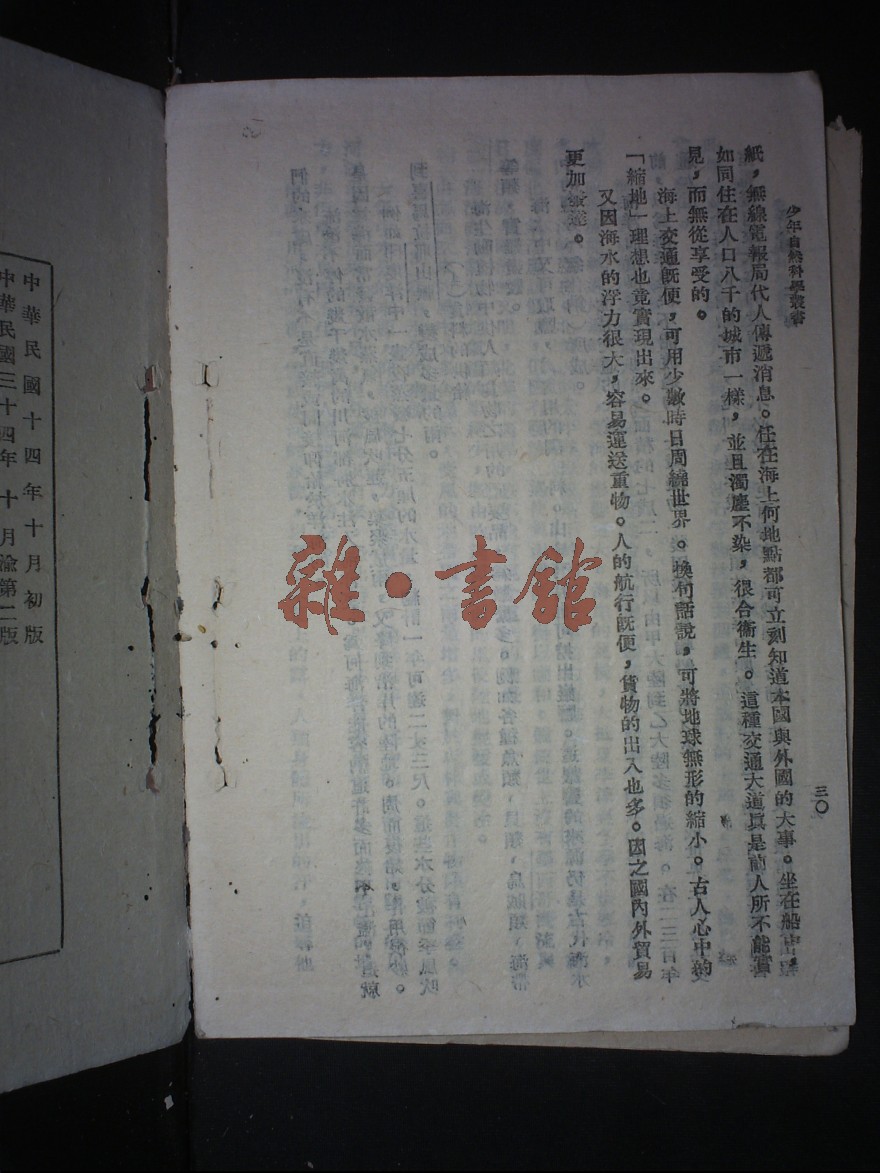 少年自然科學叢書
三〇
紙，無線電報局代人傳遞消息。任在海上何地點都可立刻知道本國與外國的大事。坐在船中，
如同住在人口八千的城市一樣，並且濁塵不染，很合衛生。這種交通大道眞是前人所不能
見，而無從享受的。
海上交通旣便，可用少數時日周繞世界。換句話說，可將地球無形的縮小。古人心中的
「縮地」理想也竟實現出來。
又因海水的浮力很大，容易運送重物。人的航行旣便，貨物的出入也多。因之國內外貿易
更加發達。
中華民國十四年十月初版
中華民國三十四年十月渝第二版
雜·書館